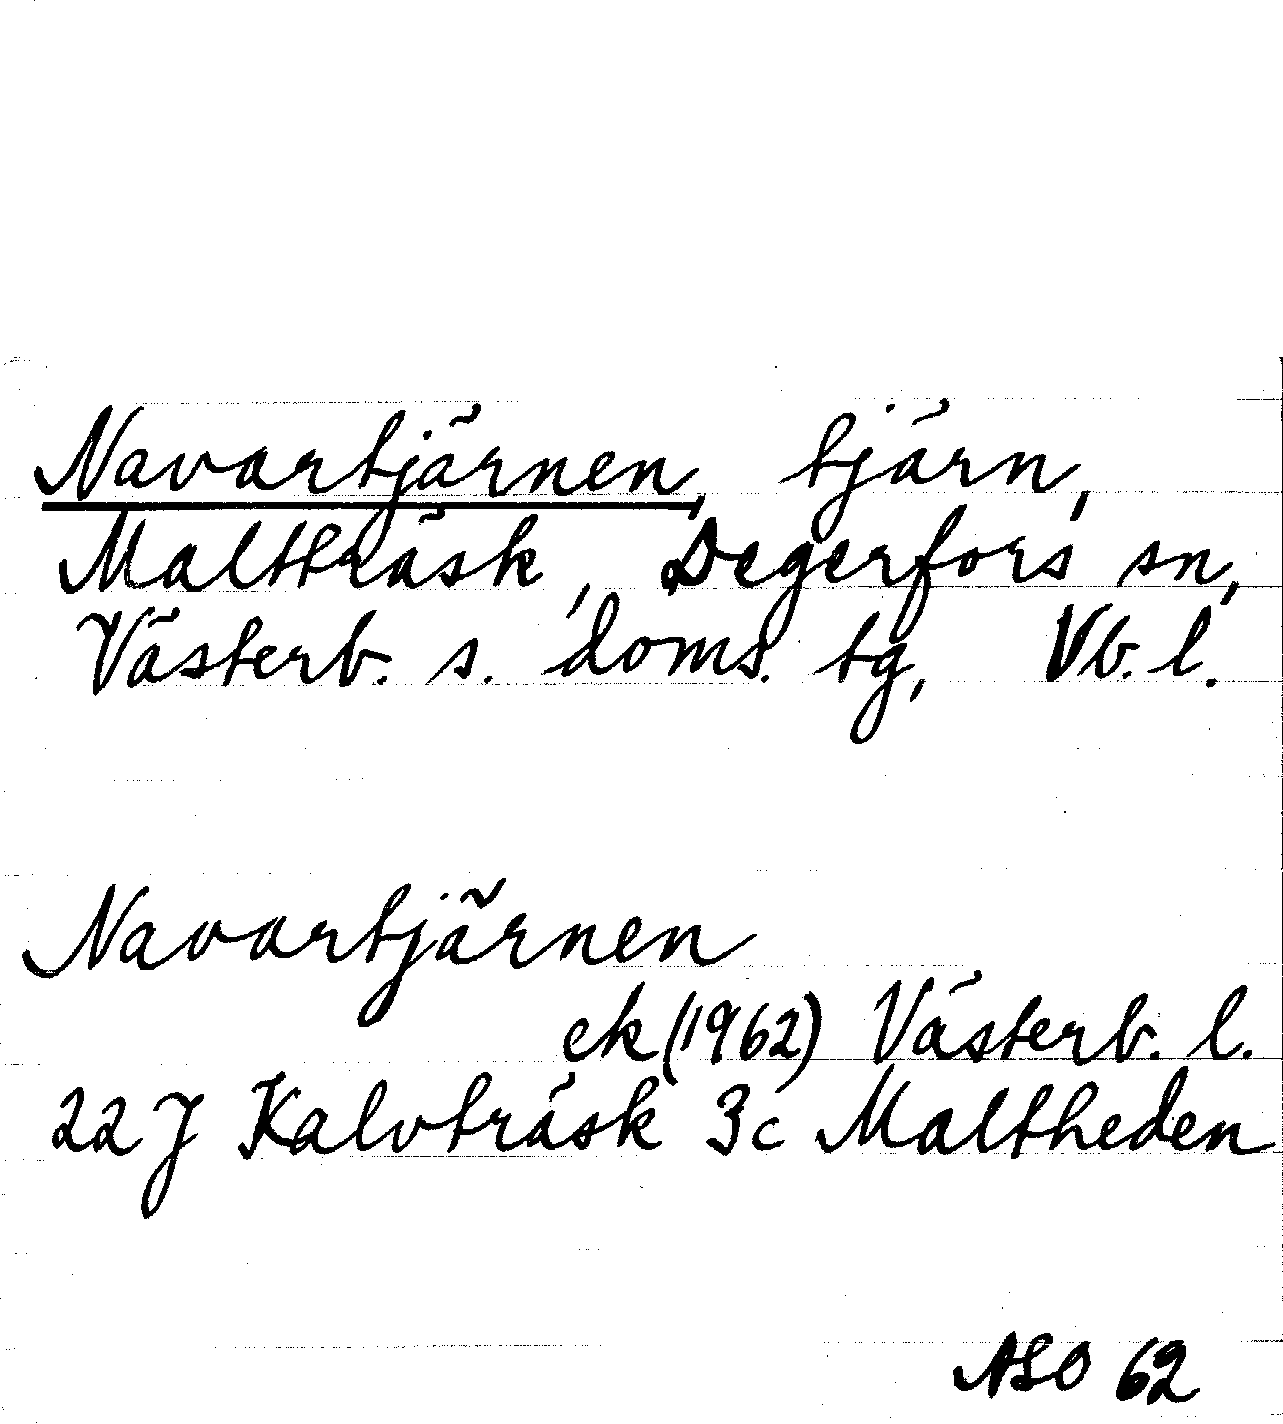 Navartjärnen, tjärn,
Maltträsk, Degerfors sn,
Västerb. s. doms. tg, Vb. l.
Navartjärnen
ek (1962) Västerb. l.
22 J Kalvträsk 3c Maltheden
ASO 62